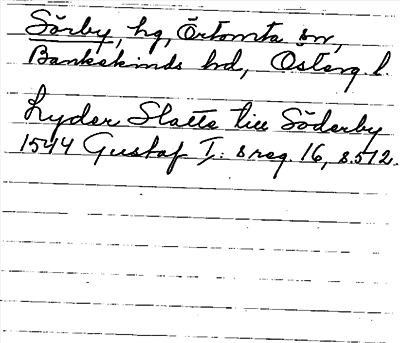 Sörby, hg, Örtomta sn,
Bankekinds hd, Österg. l.
Lyder Slatte till Söderby
1544 Gustaf I: s reg. 16, s. 512.